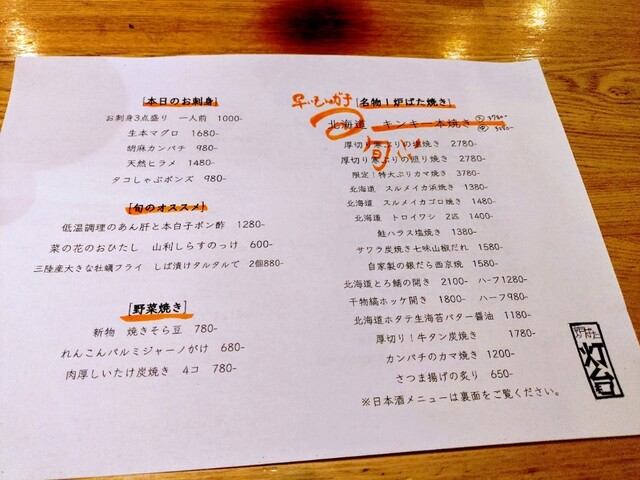 [本日のお刺身]
お刺身3点盛り 一人前 1000-
生本マグロ 1680-
胡麻カンパチ 980-
天然ヒラメ 1480-
タコしゃぶポンズ 980-
[旬のオススメ]
低温調理のあん肝と本白子ポン酢 1280-
菜の花のおひたし 山利しらすのっけ 600-
三陸産大きな牡蠣フライ しば漬けタルタルで 2個880-
[野菜焼き]
新物 焼きそら豆 780-
れんこんパルミジャーノがけ 680-
肉厚しいたけ炭焼き 4コ 780-
早いもの勝ち
[名物!炉ばた焼き]
北海道 キンキ一本焼き
旬
厚切り寒ぶりの塩焼き 2780-
厚切り寒ぶりの照り焼き 2780-
限定!特大ぶりカマ焼き 3780-
北海道 スルメイカ浜焼き 1380-
北海道 スルメイカゴロ焼き 1480-
北海道 トロイワシ 2匹 1400-
鮭ハラス塩焼き 1380-
サワラ炭焼き七味山椒だれ 1580-
自家製の銀だら西京焼 1580-
北海道とろ鯖の開き 2100- ハーフ1280-
干物縞ホッケ開き 1800- ハーフ980-
北海道ホタテ生海苔バター醤油 1180-
厚切り!牛タン炭焼き 1780-
カンパチのカマ焼き 1200-
さつま揚げの炙り 650-
※日本酒メニューは裏面をご覧ください。
炉ばた 灯台